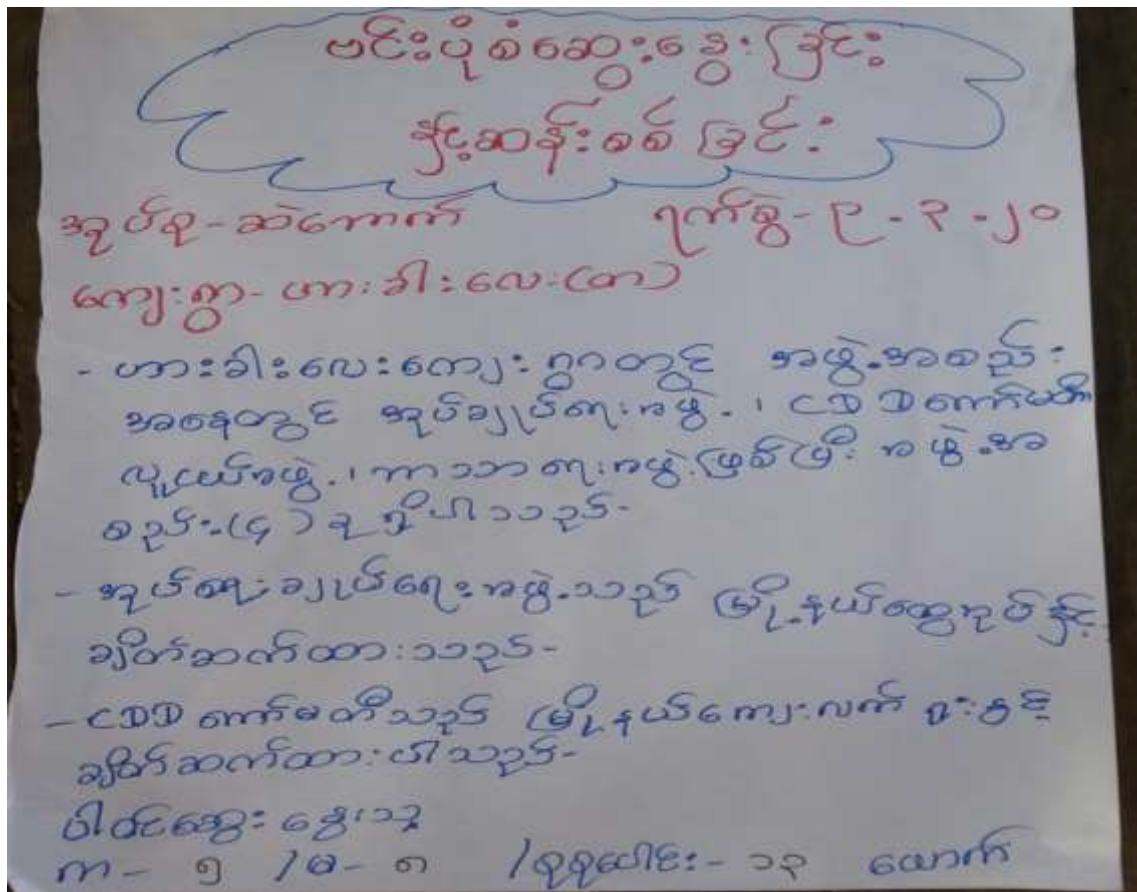 ဗင်းပုံစံဆွေးနွေးခြင်း
နှင့်ဆန်းစစ်ခြင်း
အုပ်စု-ဆဲကောက် ရက်စွဲ-၉-၃-၂၀
ကျေးရွာ-ဟားခါးလေး(တ)
- ဟားခါးလေးကျေးရွာတွင် အဖွဲ့အစည်း
အနေတွင် အုပ်ချုပ်ရေးအဖွဲ့၊ CDD ကော်မတီ၊
လူငယ်အဖွဲ့၊ ဘာသာရေးအဖွဲ့ဖြစ်ပြီး အဖွဲ့အ
စည်း(၄)ခုရှိပါသည်-
- အုပ်ရေးချုပ်ရေးအဖွဲ့သည် မြို့နယ်ထွေအုပ်နှင့်
ချိတ်ဆက်ထားသည်-
- CDD ကော်မတီသည် မြို့နယ်ကျေးလက် ရုံးနှင့်
ချိတ်ဆက်ထားပါသည်-
ပါဝင်ဆွေးနွေးသူ
က- ၅ /မ- ၈ /စုစုပေါင်း- ၁၃ ယောက်